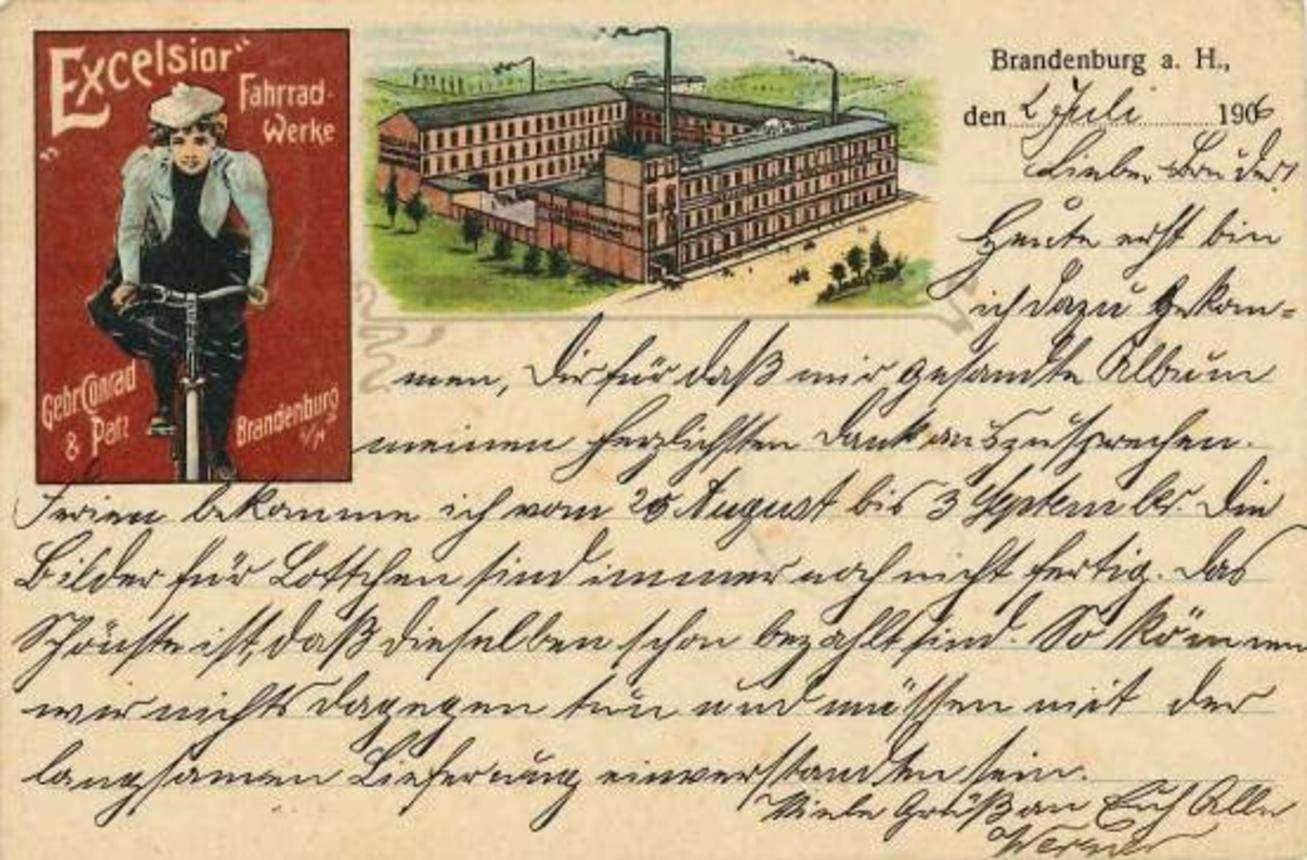 „Excelsior“
Fahrrad-
Werke
Gebr. Conrad
& Patz
Brandenburg
a/H
Brandenburg a. H.,
den 2 Juli 1906
Lieber Bruder!
Heute erst bin
ich dazu gekom=
men, Dir für daß mir gesandte Album
meinen herzlichsten Dank auszusprechen.
Ferien bekomme ich vom 26 August bis 3 September. Die
Bilder für Lottchen sind immer noch nicht fertig. Das
Schönste ist, daß dieselben schon bezahlt sind. So können
wir nichts dagegen tun und müssen mit der
langsamen Lieferung einverstanden sein.
Viele Grüße an Euch Alle
Werner